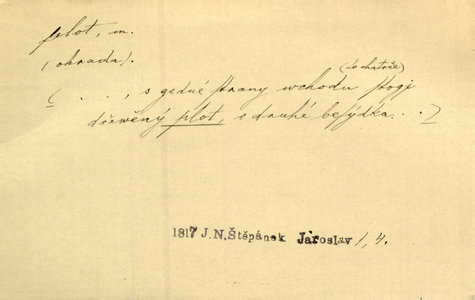 plot, m.
(ohrada).
(do chatrče)
( . . ., s gedné strany wchodu stogj
dřewěný plot, s druhé besýdka. . .)
1817 J.N.Štěpánek Jaroslav 1, 4.